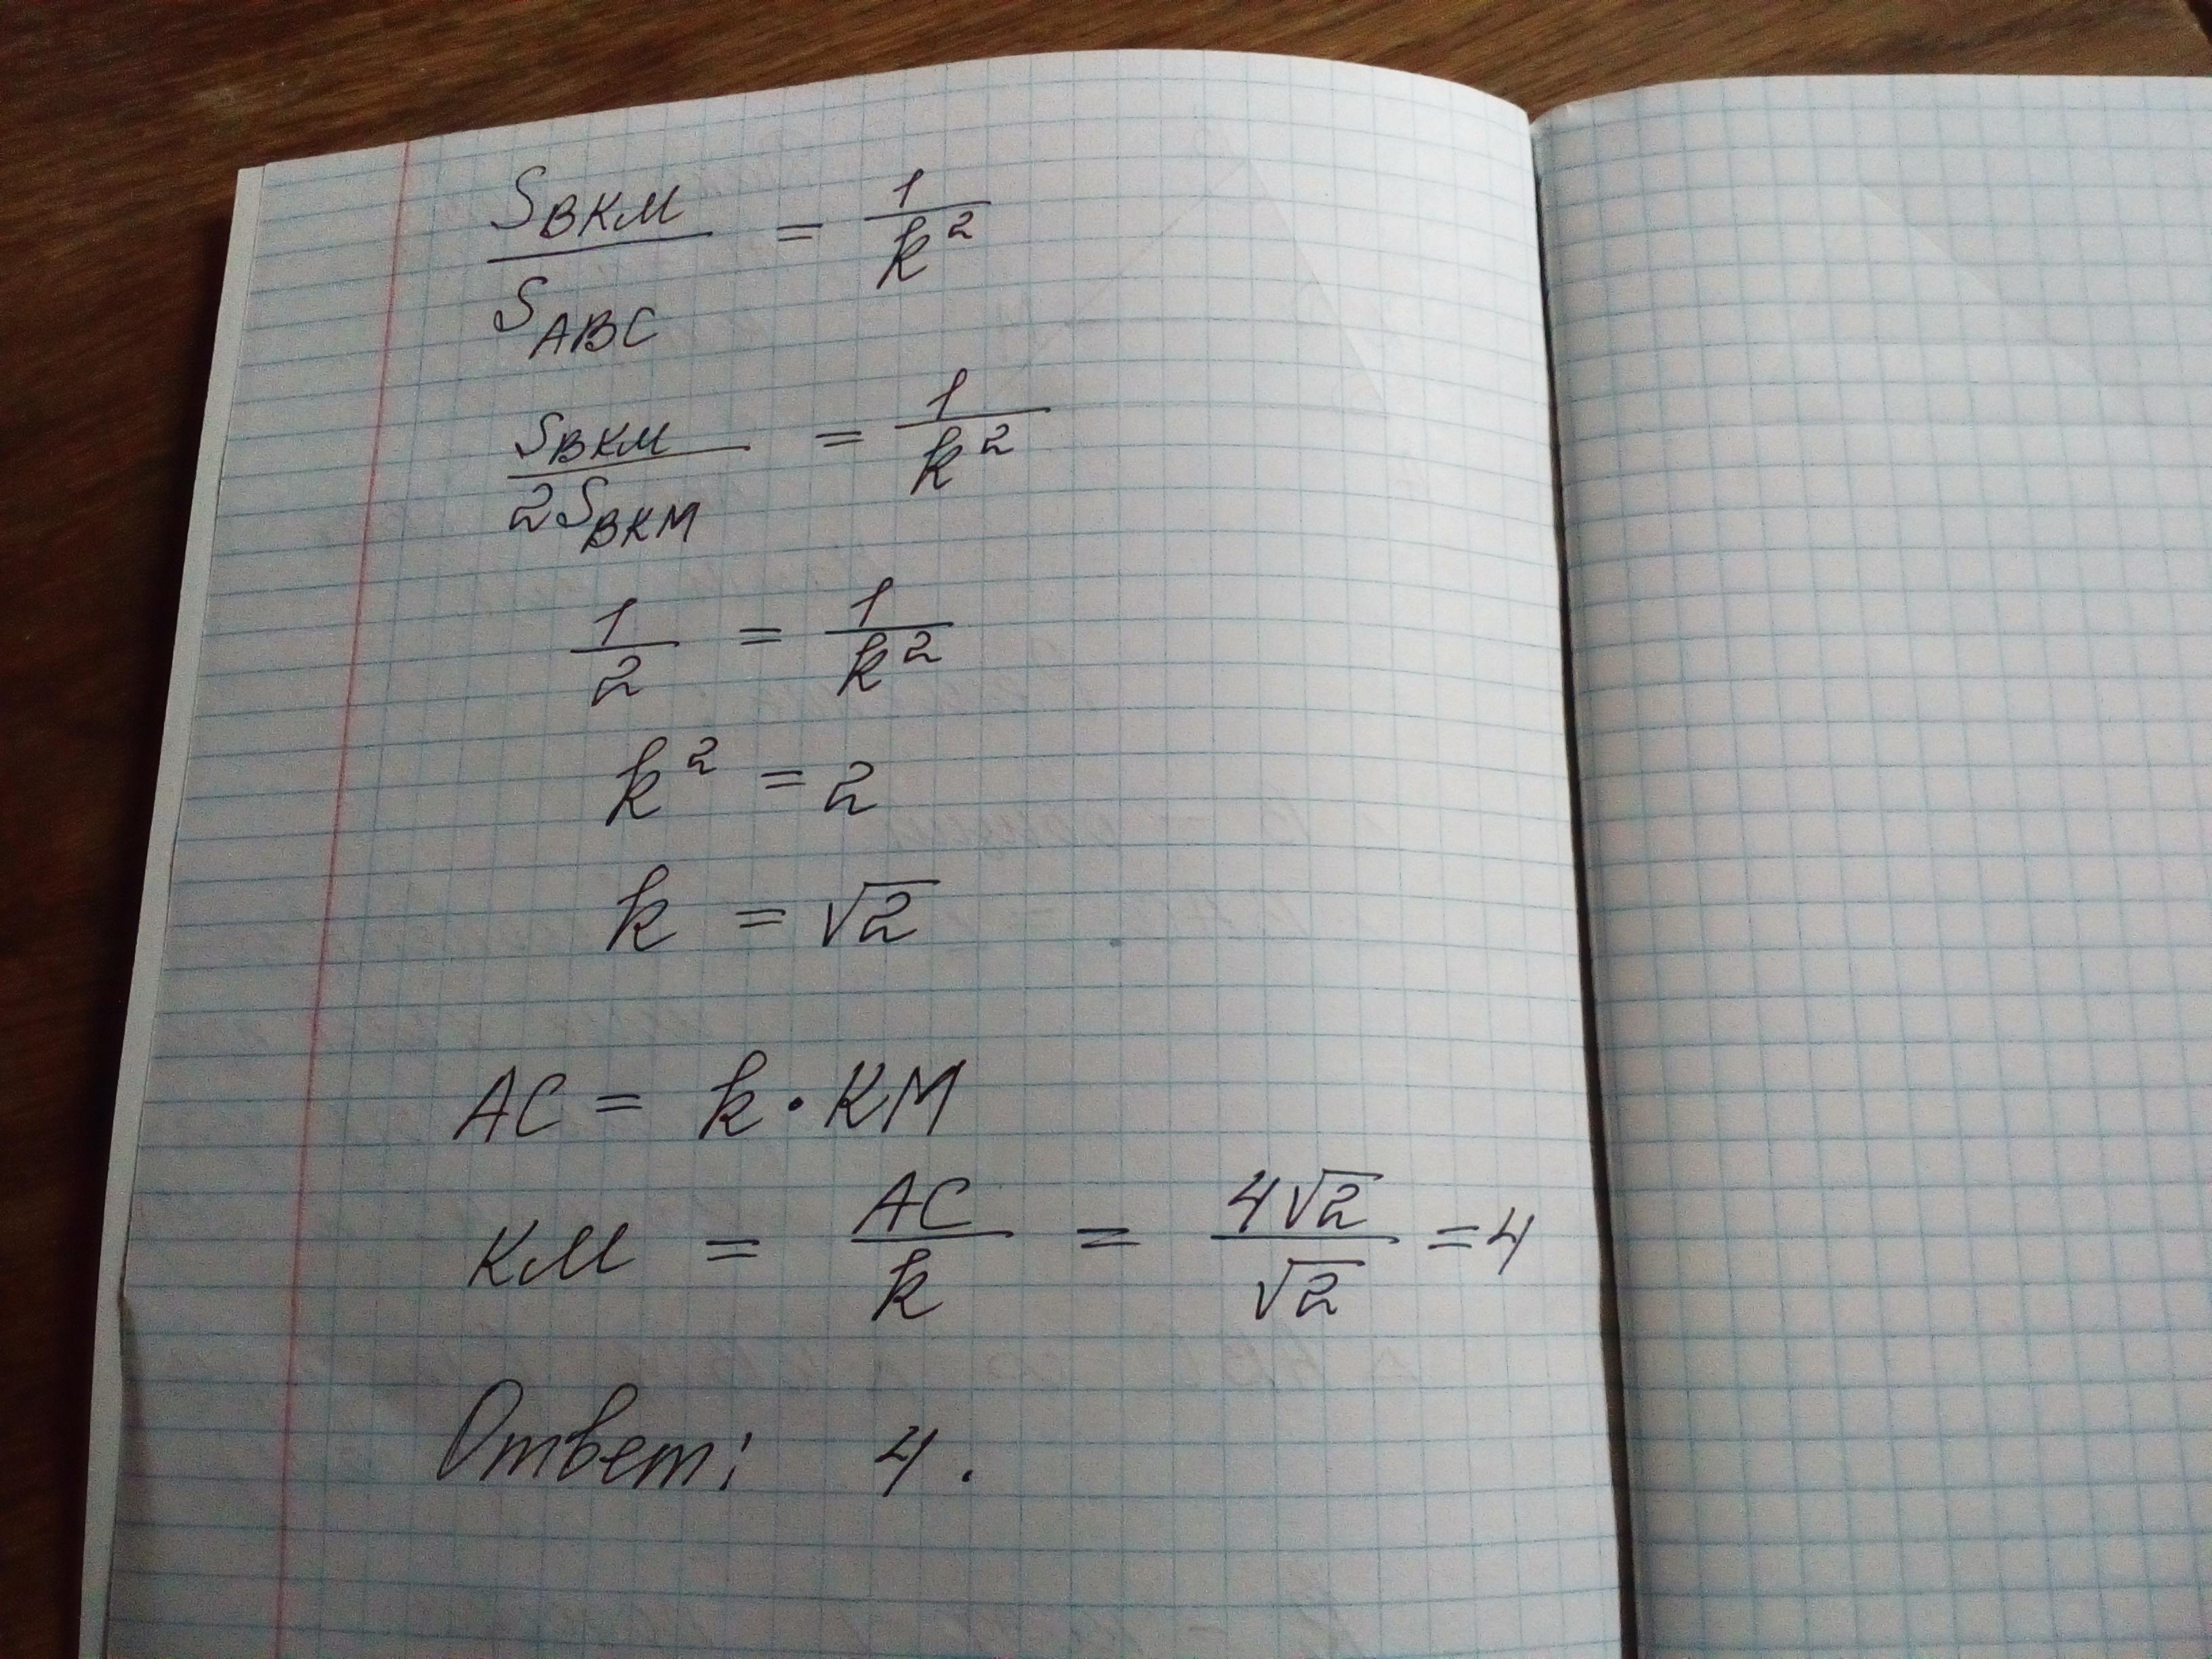 S_BKM / S_ABC = 1 / k²
S_BKM / 2S_BKM = 1 / k²
1 / 2 = 1 / k²
k² = 2
k = √2
AC = k · KM
KM = AC / k = 4√2 / √2 = 4
Ответ: 4.